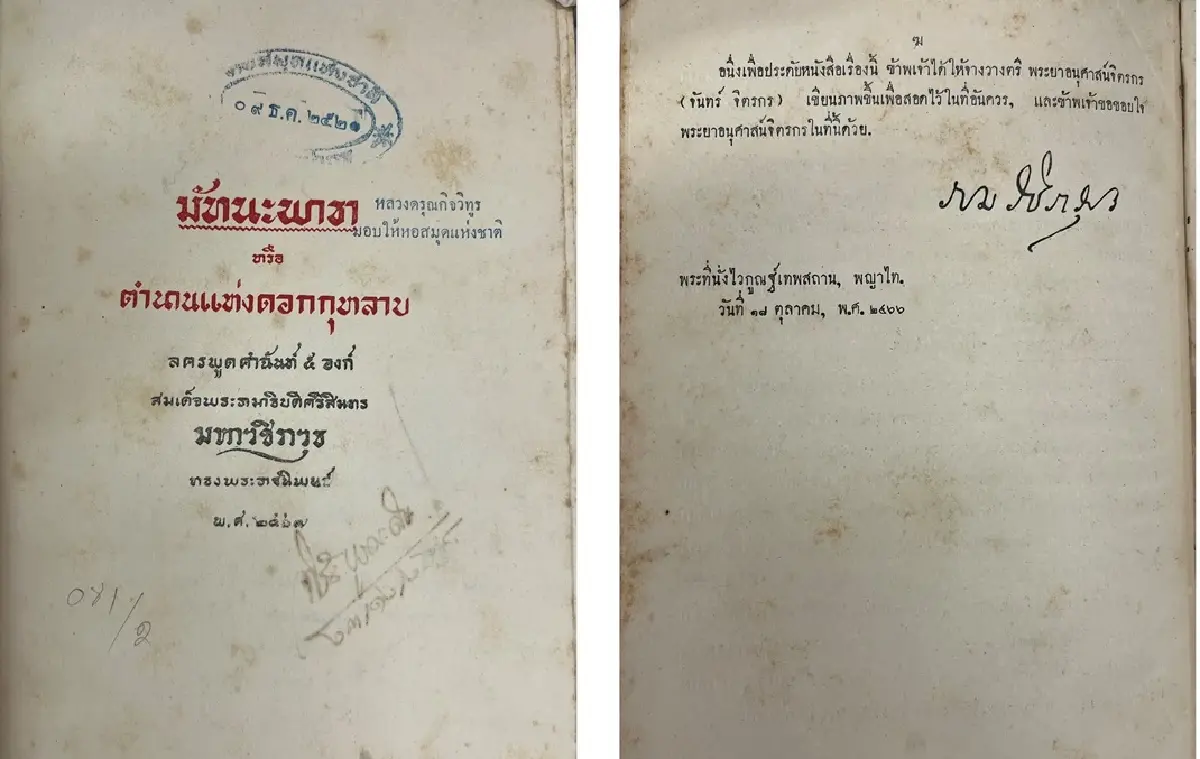 หอสมุดแห่งชาติ
๐๙ ธ.ค. ๒๕๒๑
มัทนะพาธา
หลวงดรุณกิจวิทูร
มอบให้หอสมุดแห่งชาติ
หรือ
ตำนานแห่งดอกกุหลาบ
ลครพูดคำฉันท์ ๕ องก์
สมเด็จพระรามาธิบดีศรีสินทร
มหาวชิราวุธ
ทรงพระราชนิพนธ์
พ.ศ. ๒๔๖๗
ฆ
อนึ่งเพื่อประดับหนังสือเรื่องนี้ ข้าพเจ้าได้ให้จางวางตรี พระยาอนุศาสน์จิตรกร
(จันทร์ จิตรกร) เขียนภาพขึ้นเพื่อสอดไว้ในที่อันควร, และข้าพเจ้าขอขอบใจ
พระยาอนุศาสน์จิตรกรในที่นี้ด้วย.
ราม วชิราวุธ
พระที่นั่งไวกูณฐ์เทพสถาน, พญาไท.
วันที่ ๑๘ ตุลาคม, พ.ศ. ๒๔๖๖